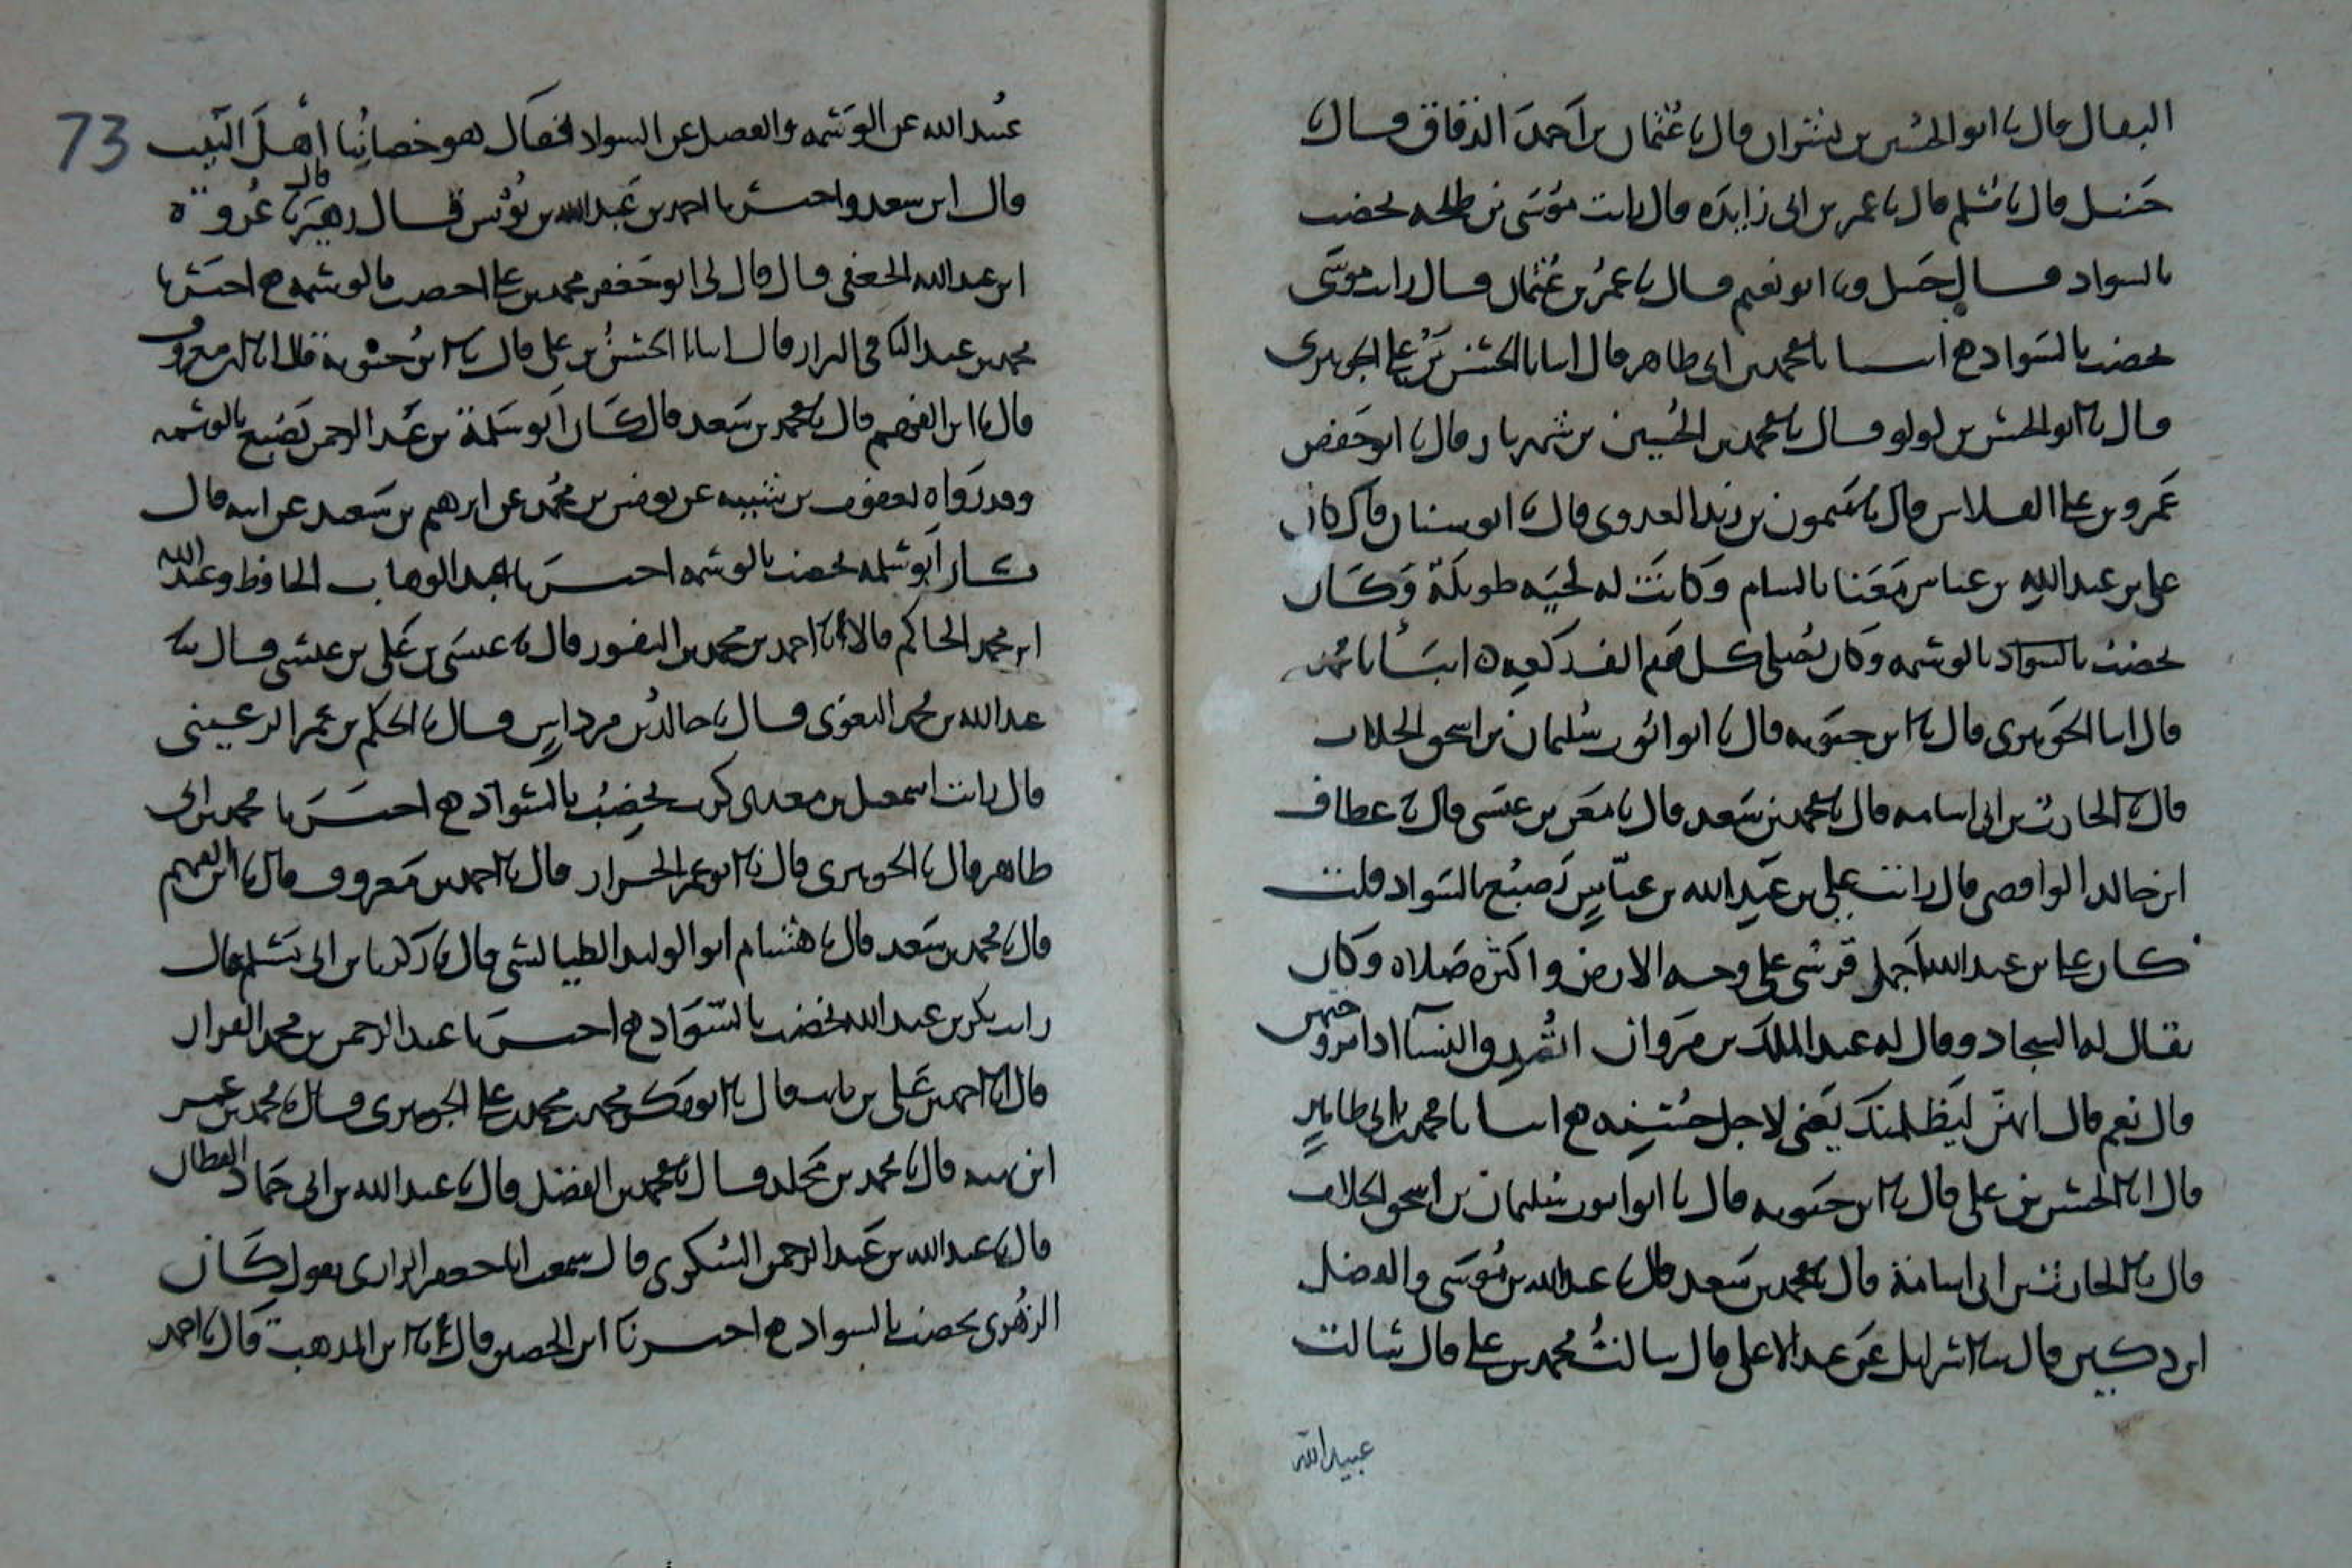 البقال قال نا ابو الحسين بن بشران قال نا عثمان بن احمد الدقاق قال نا
حنبل قال نا مسلم قال نا عمر بن ابى زايده قال رايت موسى بن طلحه يخضب
بالسواد قال حنبل ونا ابو نعيم قال نا عمر بن عثمان قال رايت موسى
يخضب بالسواد ح انبانا محمد بن ابى طاهر قال انبانا الحسن بن على الجوهرى
قال نا ابو الحسن بن لولو قال نا محمد بن الحسين بن شهريار قال نا ابو حفص
عمرو بن على الفلاس قال نا ميمون بن زيد العدوى قال نا ابو سنان قال كان
على بن عبد الله بن عباس معنا بالشام وكانت له لحيه طويلة وكان
يخضب بالسواد بالوشمه وكان يصلى كل يوم الف ركعه ه انبانا محمد
قال انا الجوهرى قال نا ابن حيويه قال نا ابو ايوب سليمان بن اسحق الجلاب
قال نا الحارث بن ابى اسامه قال نا محمد بن سعد قال نا معن بن عيسى قال نا عطاف
ابن خالد الوابصى قال رايت على بن عبد الله بن عباس يصبغ بالسواد قلت
كان على بن عبد الله اجمل قرشى على وجه الارض واكثره صلاه وكان
يقال له السجاد وقال له عبد الملك بن مروان اتمد والنسآ اذا مروخيهن
قال نعم قال انهن ليظلمنك يعنى لاجل حسنه ح انبانا محمد بن ابى طاهر
قال انا الحسن بن على قال نا ابن حيويه قال نا ابو ايوب سليمان بن اسحق الجلاب
قال نا الحارث بن ابى اسامة قال نا محمد بن سعد قال نا عبد الله بن موسى والفضل
ابن دكين قال نا اسرايل عن عبد الاعلى قال سالت محمد بن على قال سالت
عبيد الله
73
عبيد الله عن الوشمه والفضل عن السواد فقال هو خضابنا اهل البيت
قال ابن سعد واخبرنا احمد بن عبد الله بن يونس قال زهير قال نا عروة
ابن عبد الله الجعفى قال قال لى ابو جعفر محمد بن على اخضب بالوشمه ح اخبرنا
محمد بن عبد الباقى البزار قال انبانا الحسن بن على قال نا ابن حيويه قال انا ابن معروف
قال نا ابن الفهم قال نا محمد بن سعد قال كان ابو سلمة بن عبد الرحمن يصبغ بالوشمه
وقد رواه يعقوب بن شيبه عن يونس بن محمد عن ابرهيم بن سعد عن ابيه قال
كان ابو سلمه يخضب بالوشمه اخبرنا عبد الوهاب الحافظ وعبد الله
ابن محمد الحاكم قالا انا احمد بن محمد بن النقور قال نا عيسى بن على بن عيسى قال نا
عبد الله بن محمد البغوى قال نا خالد بن مرداس قال نا الحكم بن عمر الرعينى
قال رايت اسمعيل بن معدى كرب يخضب بالسواد ح اخبرنا محمد بن ابى
طاهر قال نا الجوهرى قال نا ابو عمر الخزاز قال نا احمد بن معروف قال نا ابن الفهم
قال نا محمد بن سعد قال نا هشام ابو الوليد الطيالسى قال نا زكريا بن ابى مسلم قال
رايت بكر بن عبد الله يخضب بالسواد ح اخبرنا عبد الرحمن بن محمد القزاز
قال انا احمد بن على بن ثابت قال نا ابو بكر محمد بن محمد بن على الجوهرى قال نا محمد بن عمر
ابن بهته قال نا محمد بن مخلد قال نا محمد بن الفضل قال نا عبد الله بن ابى حماد القطان
قال نا عبد الله بن عبد الرحمن السكرى قال سمعت ابا جعفر الرازى يقول كان
الزهرى يخضب بالسواد ح اخبرنا ابن الحصين قال انا ابن المذهب قال نا احمد